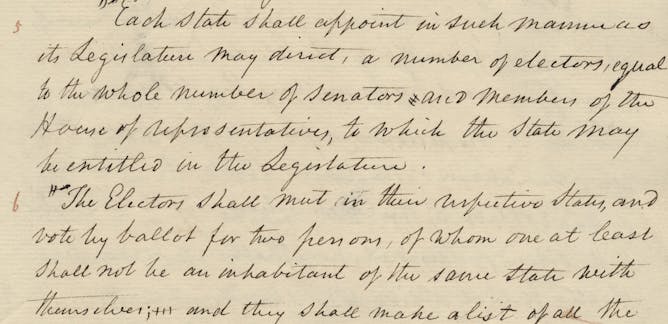 5 Each State shall appoint in such manner as
its Legislature may direct, a number of electors, equal
to the whole number of senators and members of the
House of representatives, to which the State may
be entitled in the Legislature.
6 The Electors shall meet in their respective States, and
vote by ballot for two persons, of whom one at least
shall not be an inhabitant of the same State with
themselves; and they shall make a list of all the